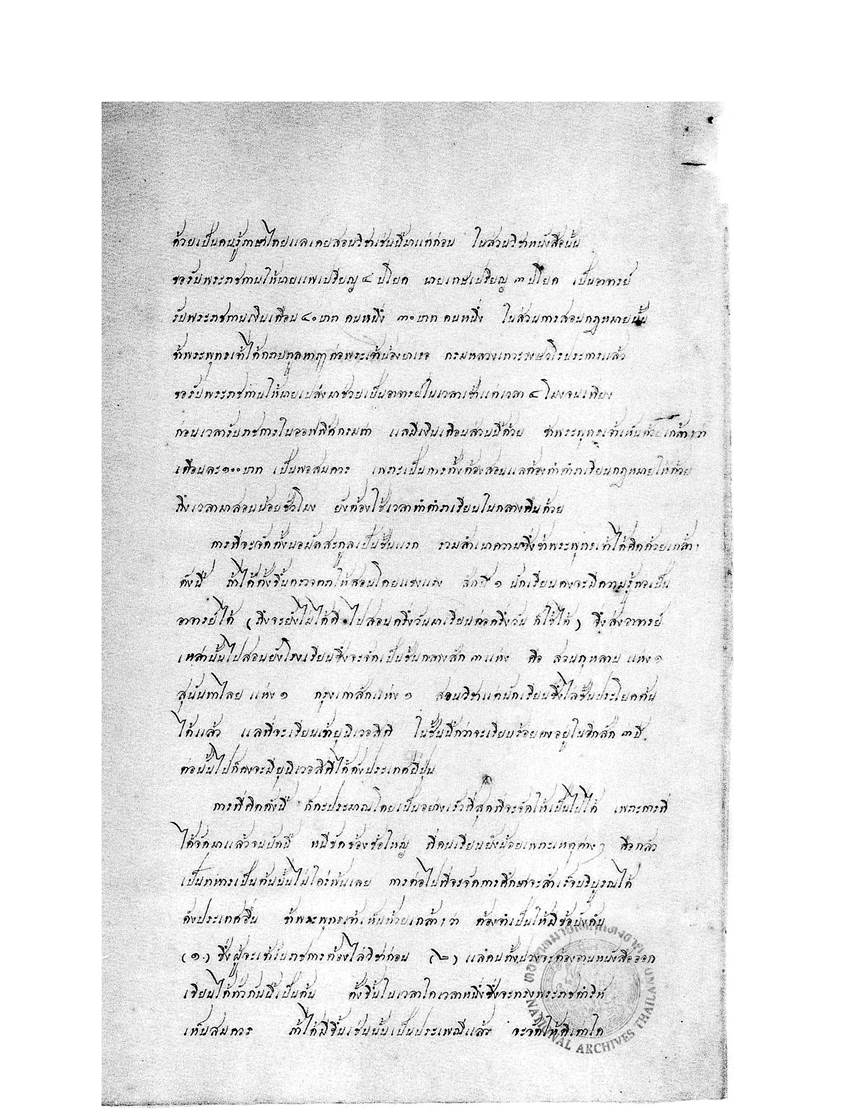 ด้วยเป็นคนรู้ภาษาไทยแลเคยสอนวิชาเช่นนี้มาแต่ก่อน ในส่วนวิชาหนังสือนั้น
ขอรับพระราชทานให้นายแพเปรียญ ๔ ประโยค นายเกษเปรียญ ๓ ประโยค เป็นอาจารย์
รับพระราชทานเงินเดือน ๔๐ บาท คนหนึ่ง ๓๐ บาท คนหนึ่ง ในส่วนการสอนกฎหมายนั้น
ข้าพระพุทธเจ้าได้กราบทูลหารือต่อพระเจ้าน้องยาเธอ กรมหลวงเทวะวงษวโรประการแล้ว
ขอรับพระราชทานให้นายเปล่งมาช่วยเป็นอาจารย์ในเวลาเช้าแต่เวลา ๔ โมงจนเที่ยง
ก่อนเวลารับราชการในออฟฟิศกรมท่า แลมีเงินเดือนส่วนนี้ด้วย ข้าพระพุทธเจ้าเห็นด้วยเกล้าฯ ว่า
เดือนละ ๑๐๐ บาท เป็นพอสมควร เพราะเป็นการทั้งต้องสอนแลต้องทำตำราเรียนกฎหมายให้ด้วย
ถึงเวลามาสอนน้อยชั่วโมง ยังต้องใช้เวลาทำตำราเรียนในกลางคืนด้วย
การที่จะจัดตั้งนอมัลสะกูลเป็นชั้นแรก รวมสำเนาความซึ่งข้าพระพุทธเจ้าได้คิดด้วยเกล้าฯ
ดังนี้ ถ้าได้ตั้งขึ้นตรวจตราให้สอนโดยแขงแรง สักปี ๑ นักเรียนคงจะมีความรู้พอเป็น
อาจารย์ได้ (ถึงจะยังไม่ได้ดี ไปสอนครึ่งวันมาเรียนต่อครึ่งวัน ก็ใช้ได้) จึงส่งอาจารย์
เหล่านั้นไปสอนยังโรงเรียนซึ่งจะจัดเป็นชั้นกลางสัก ๓ แห่ง คือ สวนกุหลาบ แห่ง ๑
สุนันทาไลย แห่ง ๑ กรุงเก่าสักแห่ง ๑ สอนวิชาแต่นักเรียนซึ่งไล่ชั้นประโยคต้น
ได้แล้ว แลที่จะเรียนเข้ายุนิเวอสิตี ในชั้นนี้กว่าจะเรียบร้อยคงอยู่ในอีกสัก ๓ ปี
ต่อนั้นไปก็คงจะมียุนิเวอสิตีได้ดังประเทศญี่ปุ่น
การที่คิดดังนี้ ก็กะประมาณโดยเป็นอย่างเร็วที่สุดที่จะจัดให้เป็นไปได้ เพราะการที่
ได้จัดมาแล้วจนบัดนี้ มีขัดข้องข้อใหญ่ ที่คนเรียนยังน้อยเพราะเหตุต่างๆ คือกลัว
เป็นทหารเป็นต้นนั้นไม่ใคร่พ้นเลย การต่อไปที่จะจัดการศึกษาจะสำเร็จบริบูรณ์ได้
ดังประเทศอื่น ข้าพระพุทธเจ้าเห็นด้วยเกล้าฯ ว่า ต้องจำเป็นให้มีข้อบังคับ
(๑) ซึ่งผู้จะเข้ารับราชการต้องไล่วิชาก่อน (๒) แลคนทั้งปวงจะต้องอ่านหนังสือออก
เขียนได้ทั่วกันนี้เป็นต้น ตั้งขึ้นในเวลาใดเวลาหนึ่งซึ่งจะทรงพระราชดำริห์
เห็นสมควร ถ้าได้มีขึ้นเช่นนั้นเป็นประเพณีแล้ว จะจัดให้ดีเท่าใด
หอจดหมายเหตุแห่งชาติ
NATIONAL ARCHIVES THAILAND